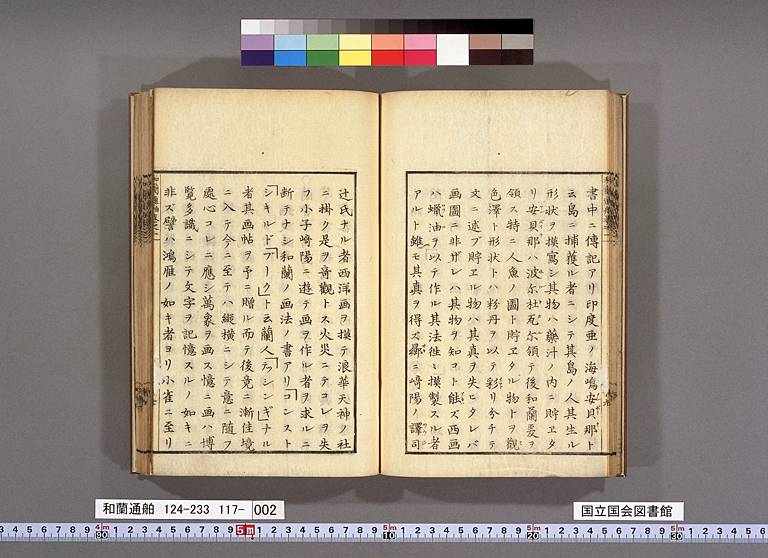 書中ニ傳記アリ印度亜ノ海嶋安貝那ト
云島ニ捕獲ル者ニシテ其島ノ人其生ル
形狀ヲ摸寫シ其物ハ藥汁ノ内ニ貯ヱタ
リ安貝那ハ波尓杜瓦尓領テ後和蘭爰ヲ
領ス特ニ人魚ノ圖ト貯ヱタル物トヲ觀
色澤ト形狀トハ粉丹ヲ以テ彩リ分チテ
文ニ述ブ貯ヱル物ハ其真ヲ失ニタレバ
画圖ニ非ザレハ其物ヲ知コト能ズ西画
ハ蝋油ヲ以テ作ル其法徃〻摸製スル者
アルト雖モ其真ヲ得ズ郷ニ﨑陽ノ譯司
辻氏ナル者西洋画ヲ摸テ浪華天神ノ社
ニ掛ク是ヲ竒觀トス火災ニテコレヲ失
フ小子﨑陽ニ遊テ画ヲ作ル者ヲ求ルニ
断テナシ和蘭ノ画法ノ書アリ「コンスト
シキルド「ブーク」ト云蘭人「テッシンギ」ナル
者其画帖ヲ予ニ贈ル而テ後竟ニ漸佳境
ニ入テ今ニ至テハ縦横ニシテ意ニ随フ
處心コレニ應シ萬象ヲ画ス憶ニ画ハ博
覧多識ニシテ文字ヲ記憶スルノ如キニ
非ズ譬ハ鴻雁ノ如キ者ヨリ小雀ニ至リ
和蘭通舶 124-233 117-002
国立国会図書館